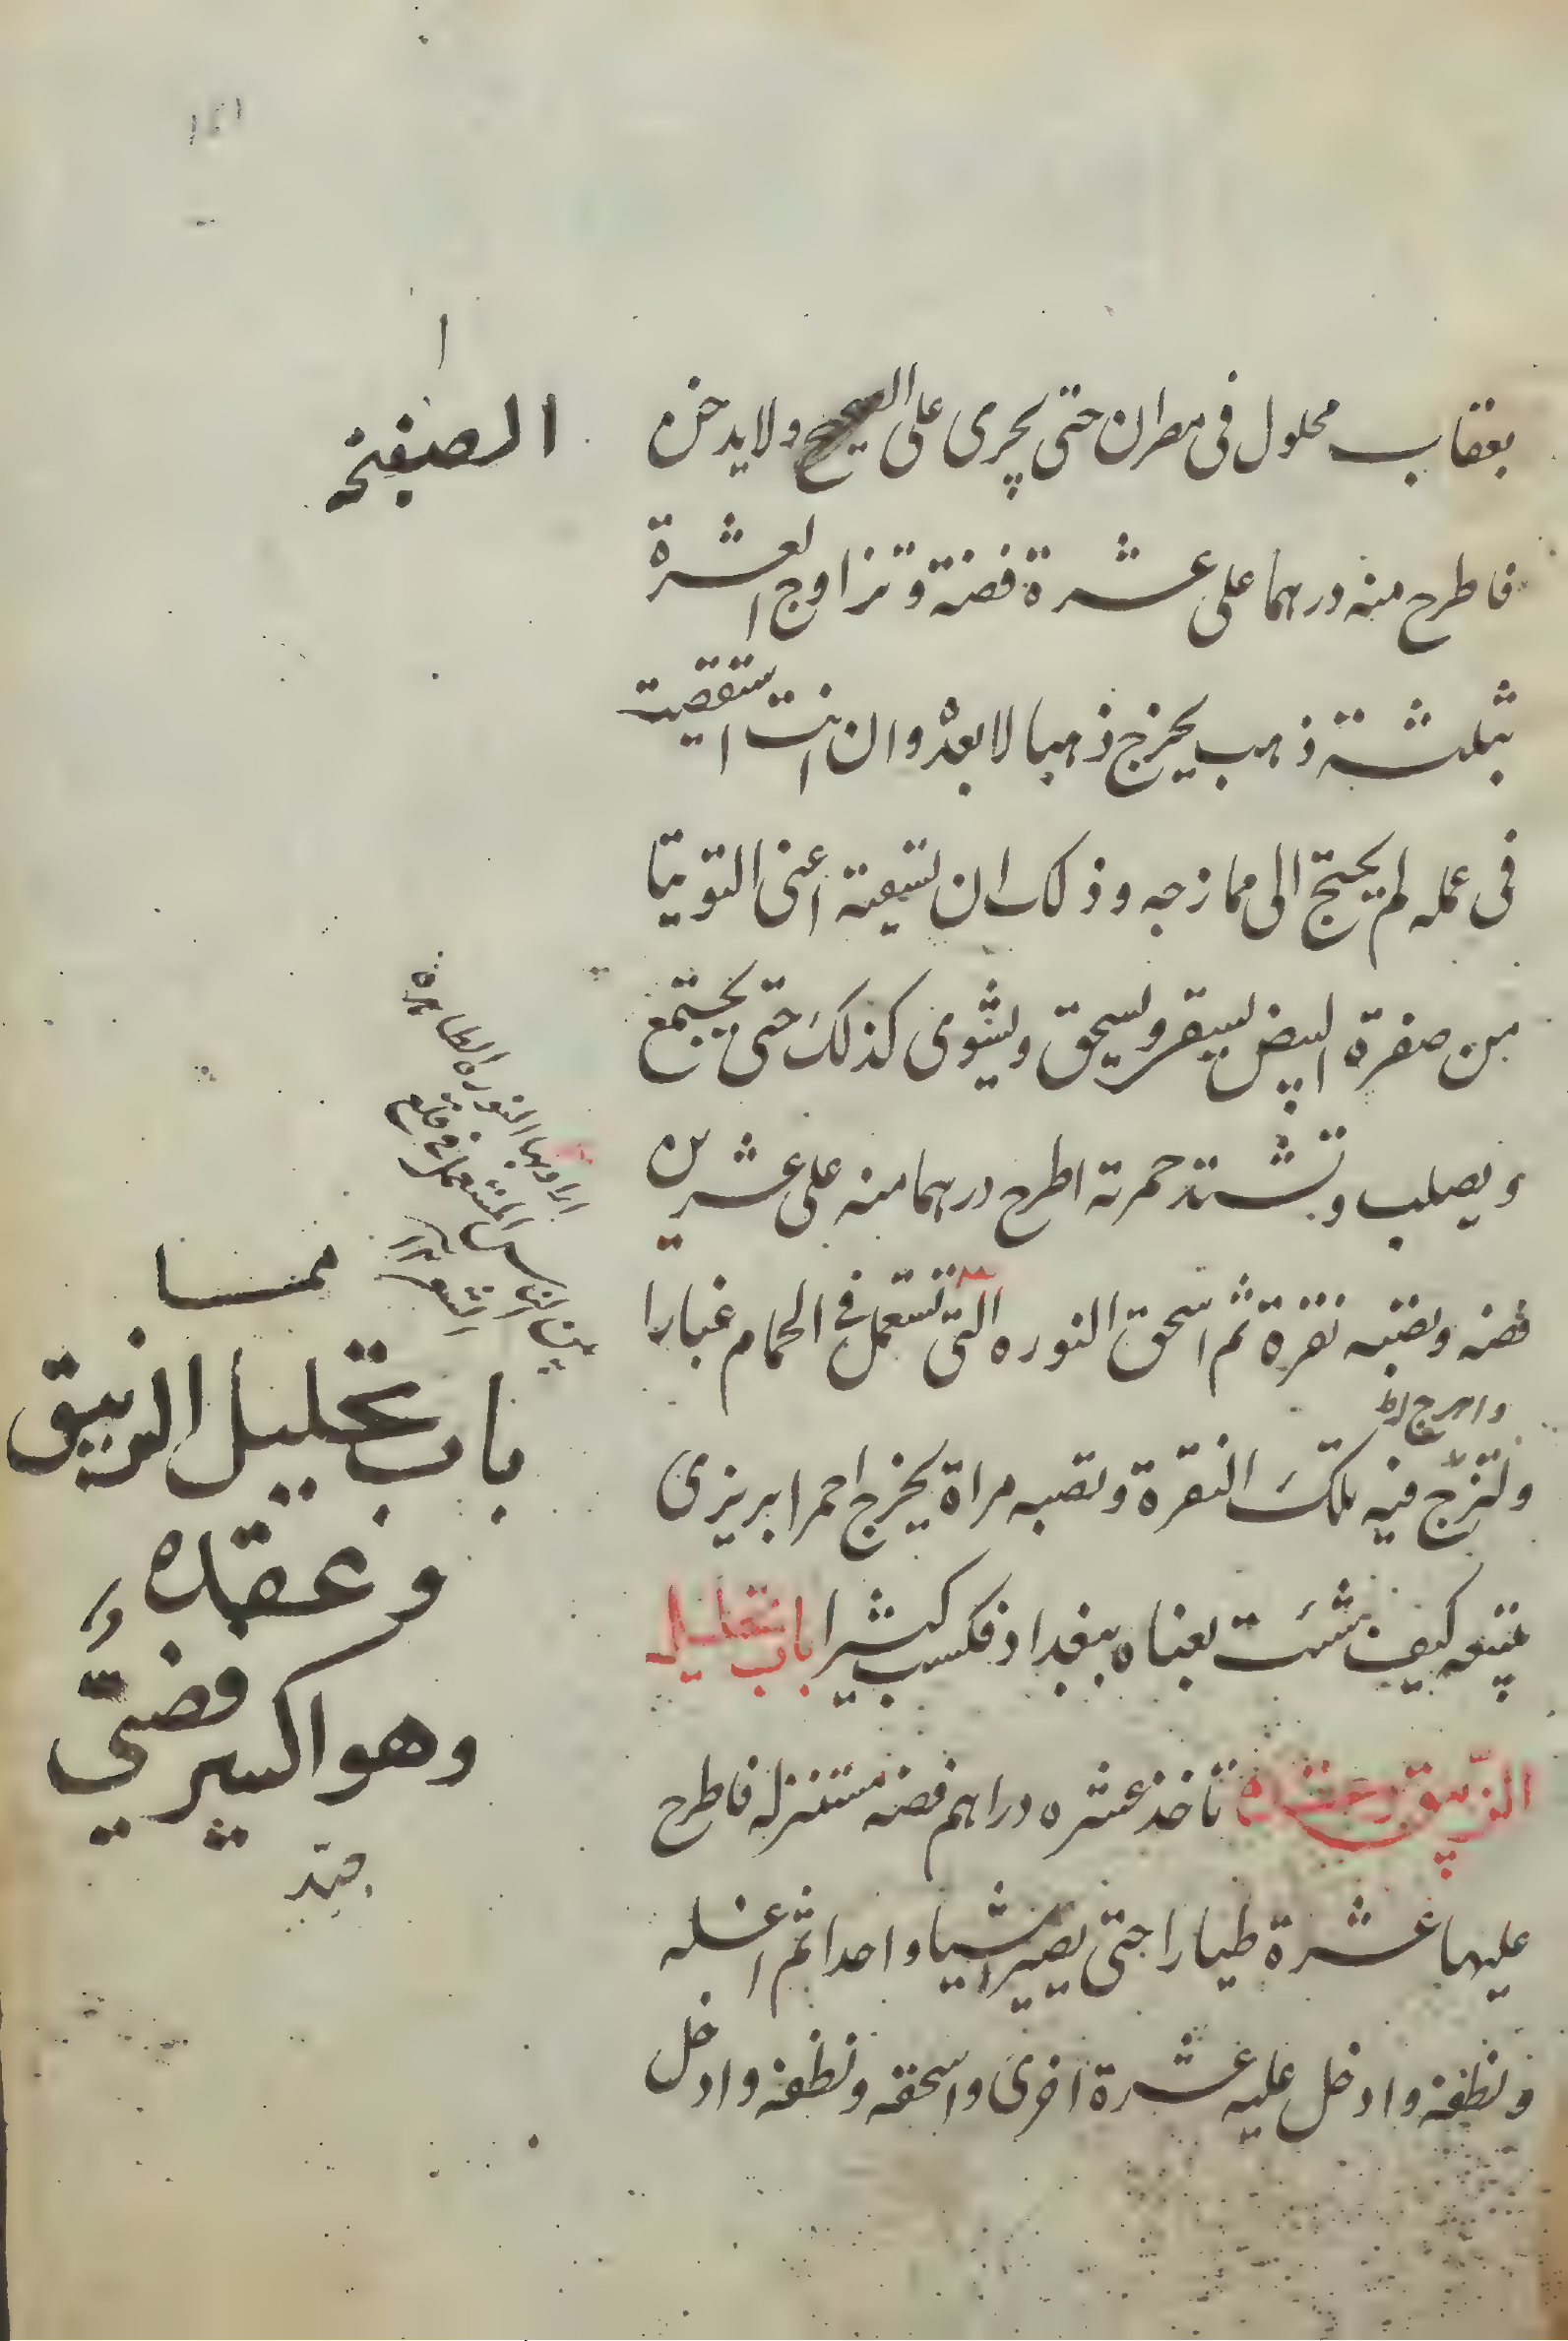 بعقاب محلول فى مطران حتى يجرى على الصحيح ولا يدخن
فاطرح منه درهما على عشرة فضة وتزاوج العشرة
بثلثة ذهب يخرج ذهبا لا بعده وان انت استقصيت
فى عمله لم يحتج الى ممازجه وذلك ان تسقيه اعنى التوتيا
من صفرة البيض ليستقر ويسحق ويشوى كذلك حتى يجتمع
ويصلب وتشتد حمرته اطرح درهما منه على عشرين
فضه وتصبه نقرة ثم اسحق النوره التى تستعمل فى الحمام غبارا
وتزج فيه تلك النقرة وتصبه مراة يخرج احمر ابريزى
تبيعه كيف شئت بعناه ببغداد فكسب كثيرا باب تحليل
الزيبق وعقده تاخذ عشره دراهم فضه مستنزله فاطرح
عليها عشرة طيارا حتى يصير شيا واحدا ثم اغسله
ونظفه وادخل عليه عشرة اخرى واسحقه ونظفه وادخل
الصبغة
اراد بها النوره الطاهره
المستعمل فى قلع
الشعر
بين الناس
باب تحليل الزيبق
وعقده
وهو اكسير فضى
جيد